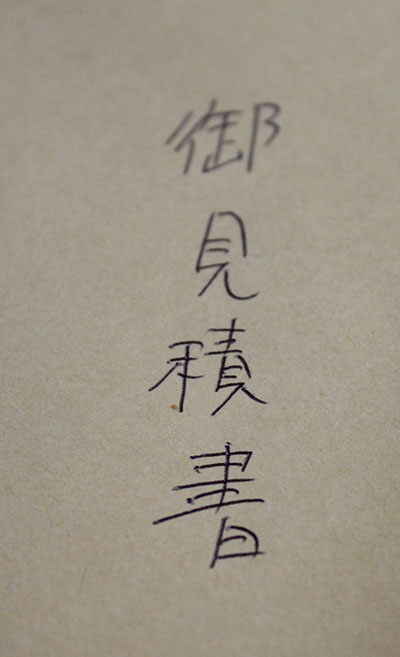 御見積書